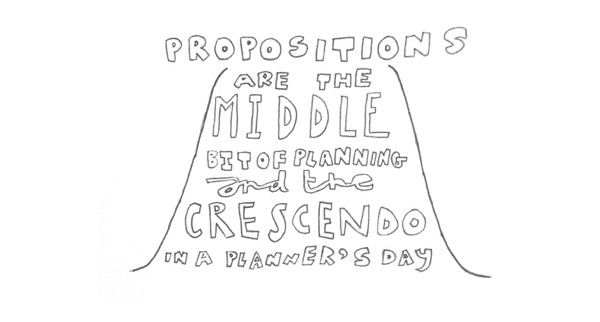 PROPOSITIONS
ARE THE
MIDDLE
BIT OF PLANNING
and the
CRESCENDO
IN A PLANNER'S DAY